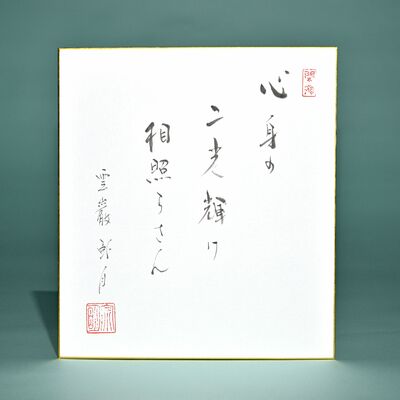 心身の
二光輝け
相照らさん
雲巌